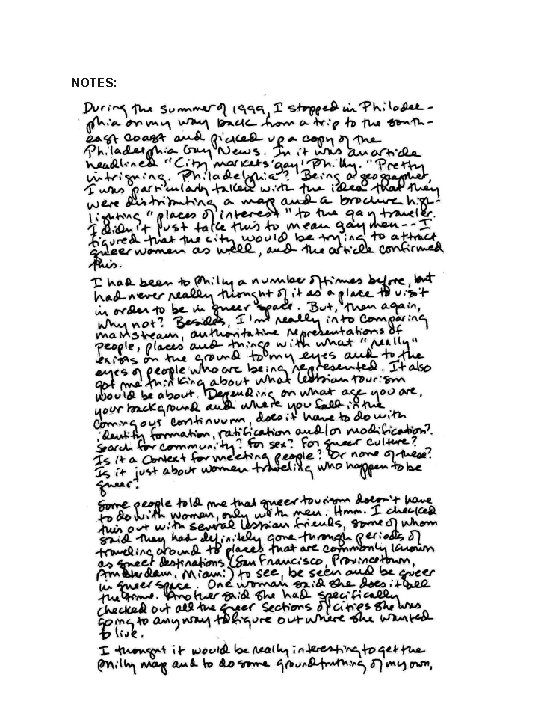 NOTES:
During the summer of 1999, I stopped in Philadel-
phia on my way back from a trip to the south-
east coast and picked up a copy of the
Philadelphia Gay News. In it was an article
headlined "City markets 'gay' Philly." Pretty
intriguing. Philadelphia? Being a geographer,
I was particularly taken with the idea that they
were distributing a map and a brochure high-
lighting "places of interest" to the gay traveler.
I didn't just take this to mean gay men -- I
figured that the city would be trying to attract
queer women as well, and the article confirmed
this.
I had been to Philly a number of times before, but
had never really thought of it as a place to visit
in order to be in queer space. But, then again,
why not? Besides, I'm really into comparing
mainstream, authoritative representations of
people, places and things with what "really"
exists on the ground to my eyes and to the
eyes of people who are being represented. It also
got me thinking about what lesbian tourism
would be about. Depending on what age you are,
your background and where you fall in the
coming out continuum, does it have to do with
identity formation, ratification and/or modification?
Search for community? For sex? For queer culture?
Is it a context for meeting people? Or none of these?
Is it just about women traveling who happen to be
queer?
Some people told me that queer tourism doesn't have
to do with women, only with men. Hmm. I checked
this out with several lesbian friends, some of whom
said they had definitely gone through periods of
traveling around to places that are commonly known
as queer destinations (San Francisco, Provincetown,
Amsterdam, Miami) to see, be seen and be queer
in queer space. One woman said she does it all
the time. Another said she had specifically
checked out all the queer sections of cities she was
going to anyway to figure out where she wanted
to live.
I thought it would be really interesting to get the
Philly map and to do some groundtruthing of my own,